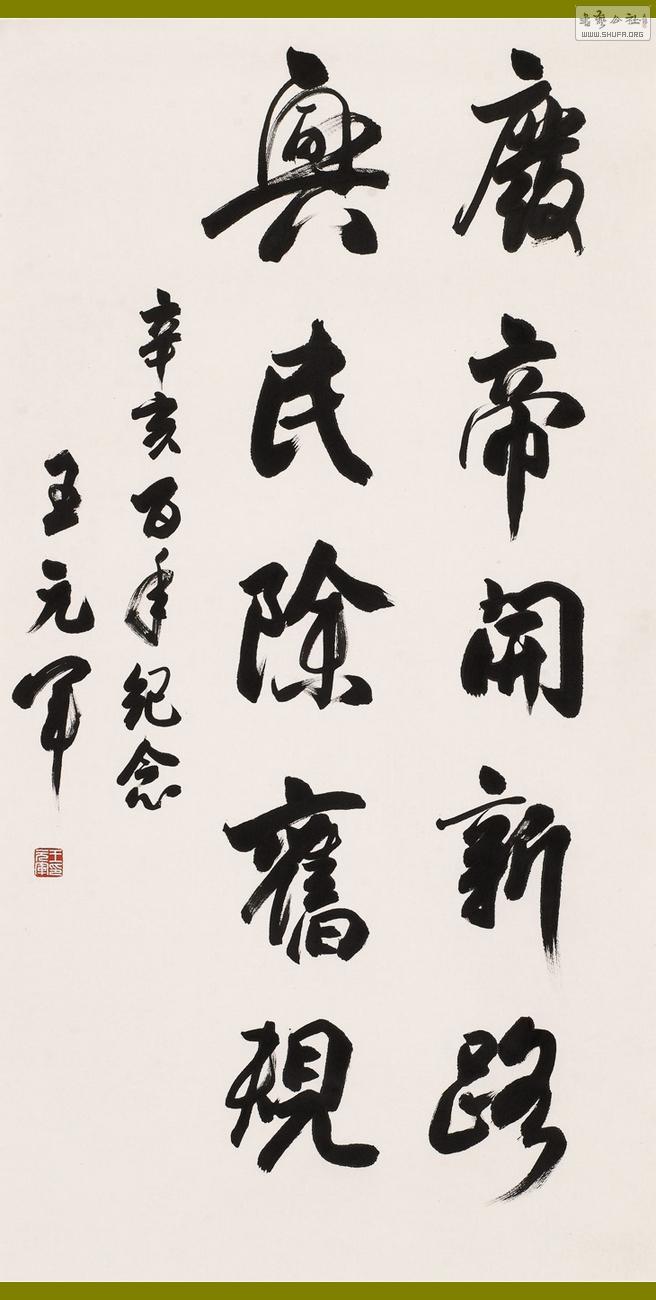 廢帝開新路
興民除舊規
辛亥百年紀念
王元軍
王元軍印
书艺公社
WWW.SHUFA.ORG